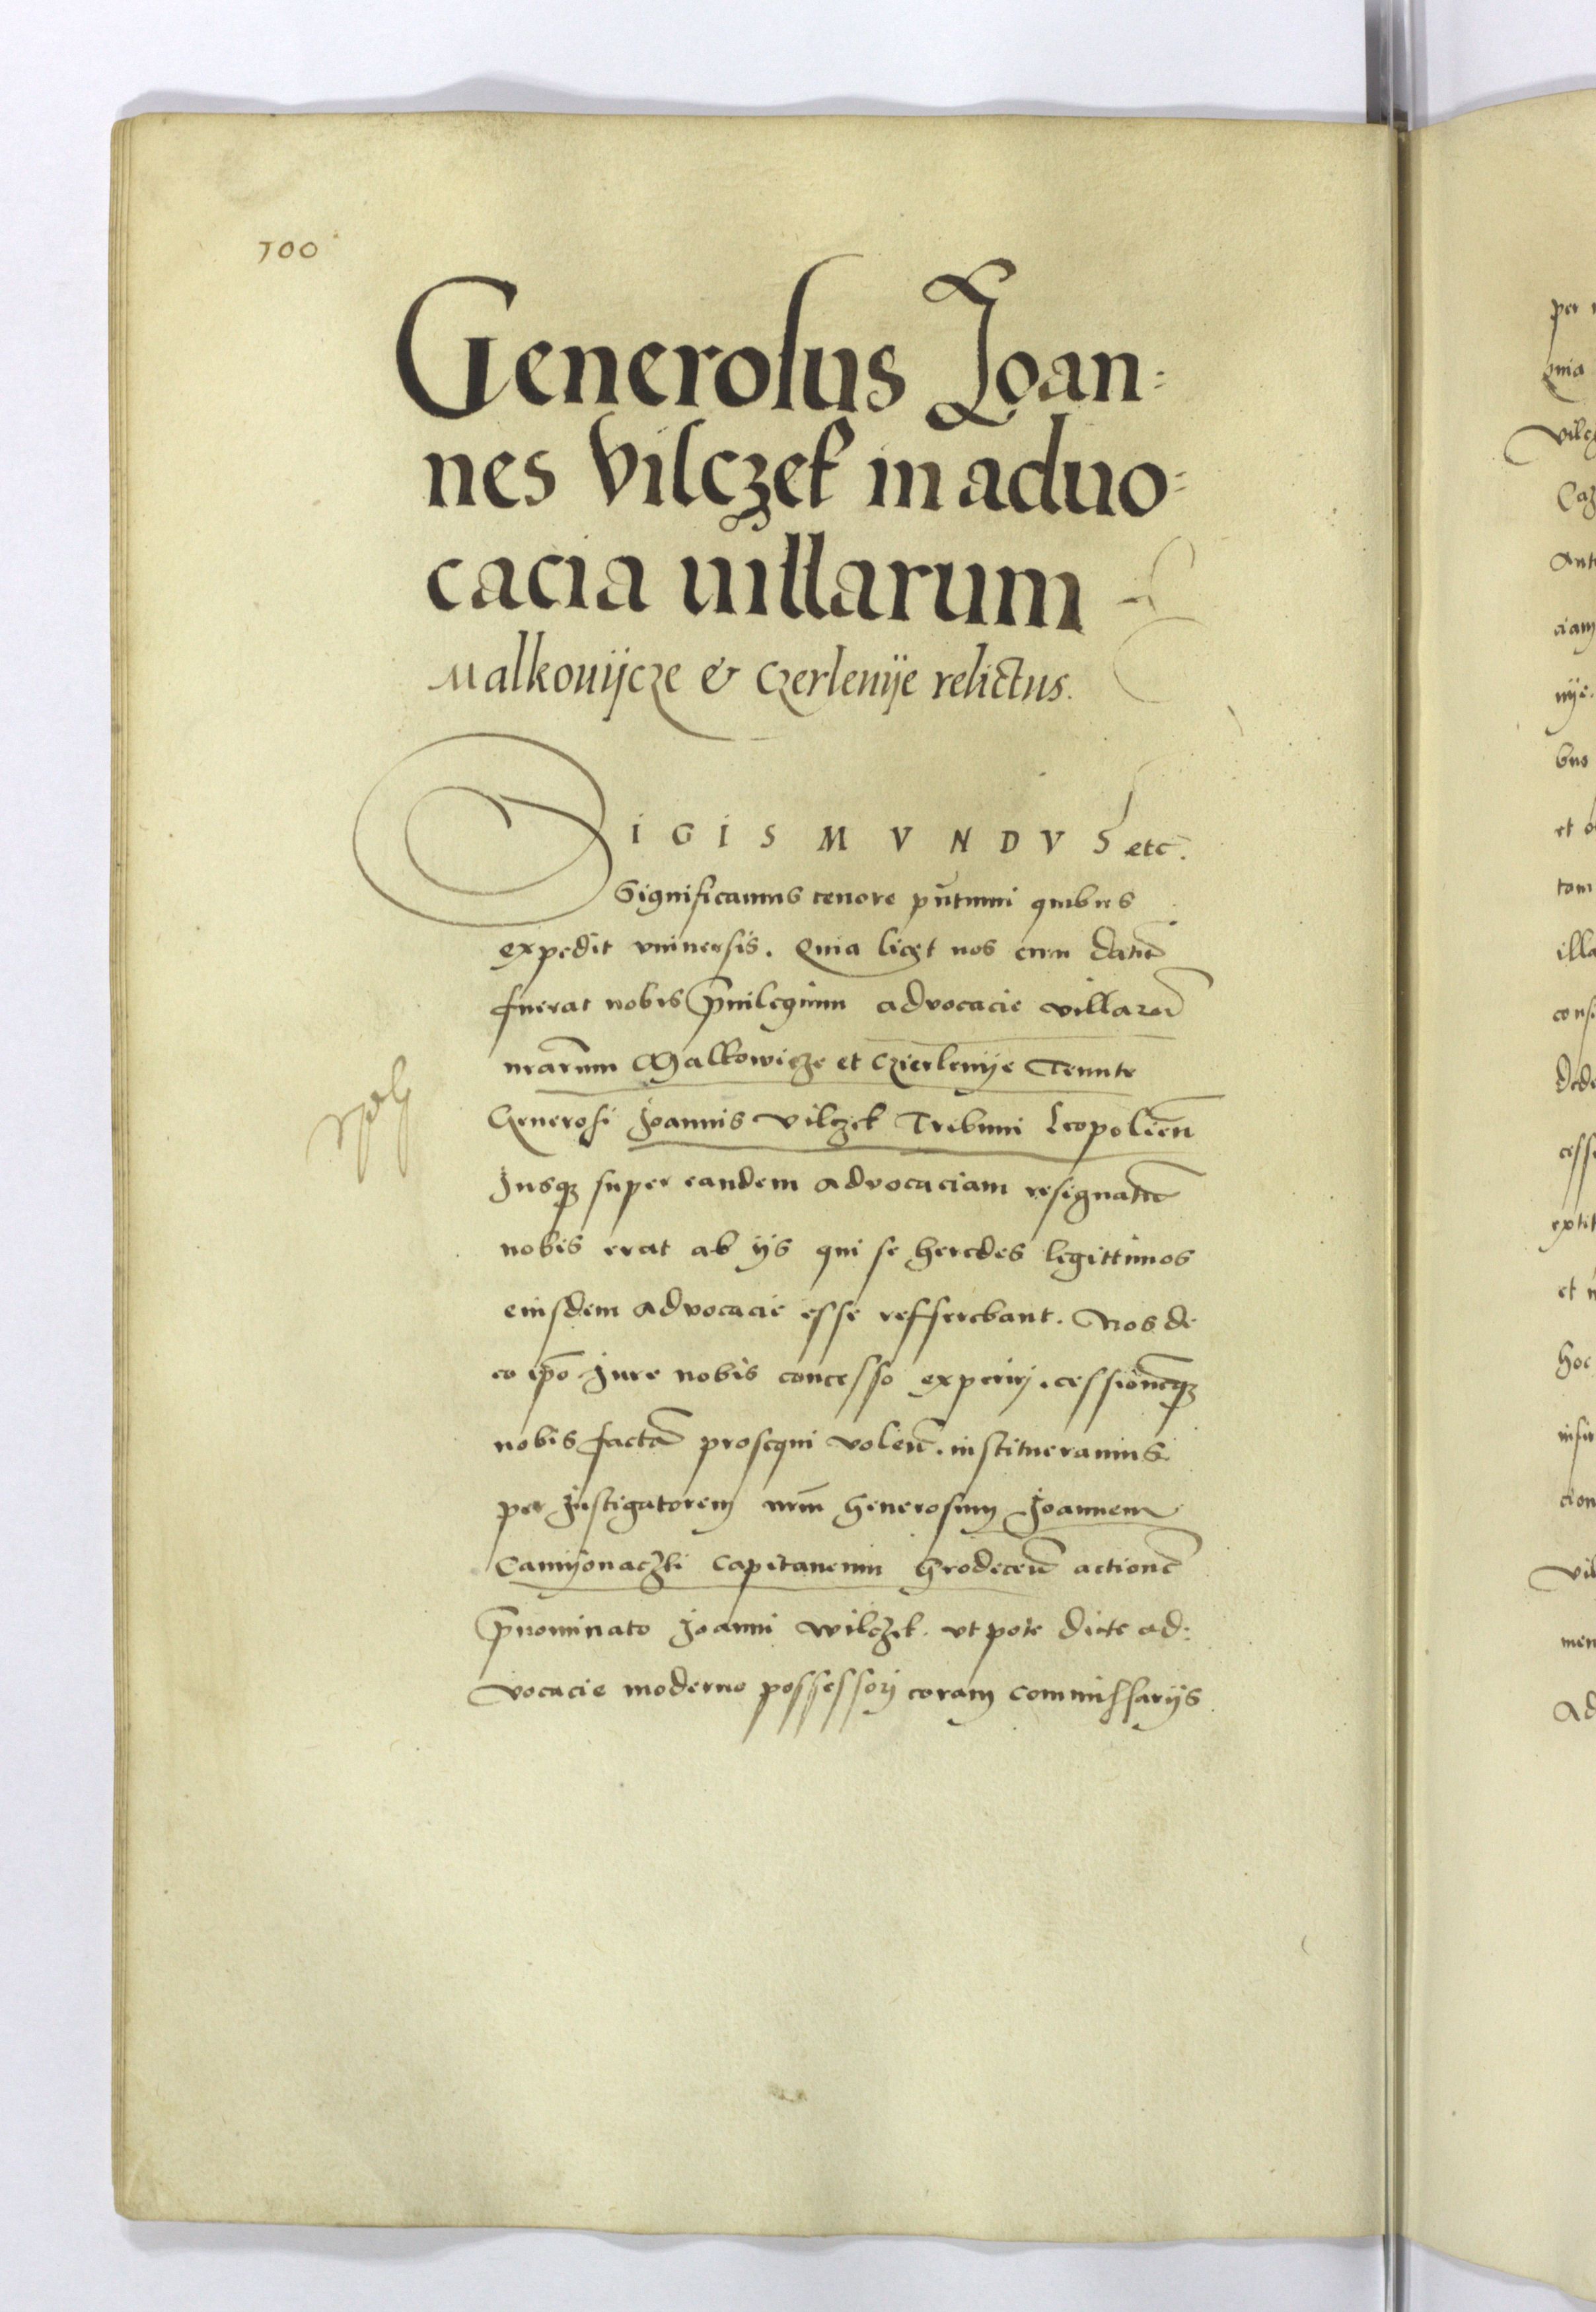 100
Generosus Joan=
nes Vilczek in aduo=
cacia uillarum
Malkouijcze & Czerlenije relictus.
SIGISMVNDVS etc.
Significamus tenore pn̄tium quibus
expedit vniuersis. Quia licet nos cum datū
fuerat nobis p̄uilegium advocacie villarū
nr̄arum Malkowicze et Czierlenije Tenute
Generosi Joannis Vilczek Tribuni Leopolien̄
Jusqʒ super eandem advocaciam resignatū
nobis erat ab ijs qui se heredes legittimos
eiusdem advocacie esse reffserebant. Nos de
eo ip̄o Jure nobis concesso experirj. cessionēqʒ
nobis factā prosequi volen̄. institueramus
per Instigatorem nr̄m Generosum Joannem
Camyonaczki Capitaneum Grodecen̄ actionē
p̄nominato Joanni Wilczek. vt pote dicte ad:
vocacie moderno possessorj coram commissarijs
per
quia
Vilcz